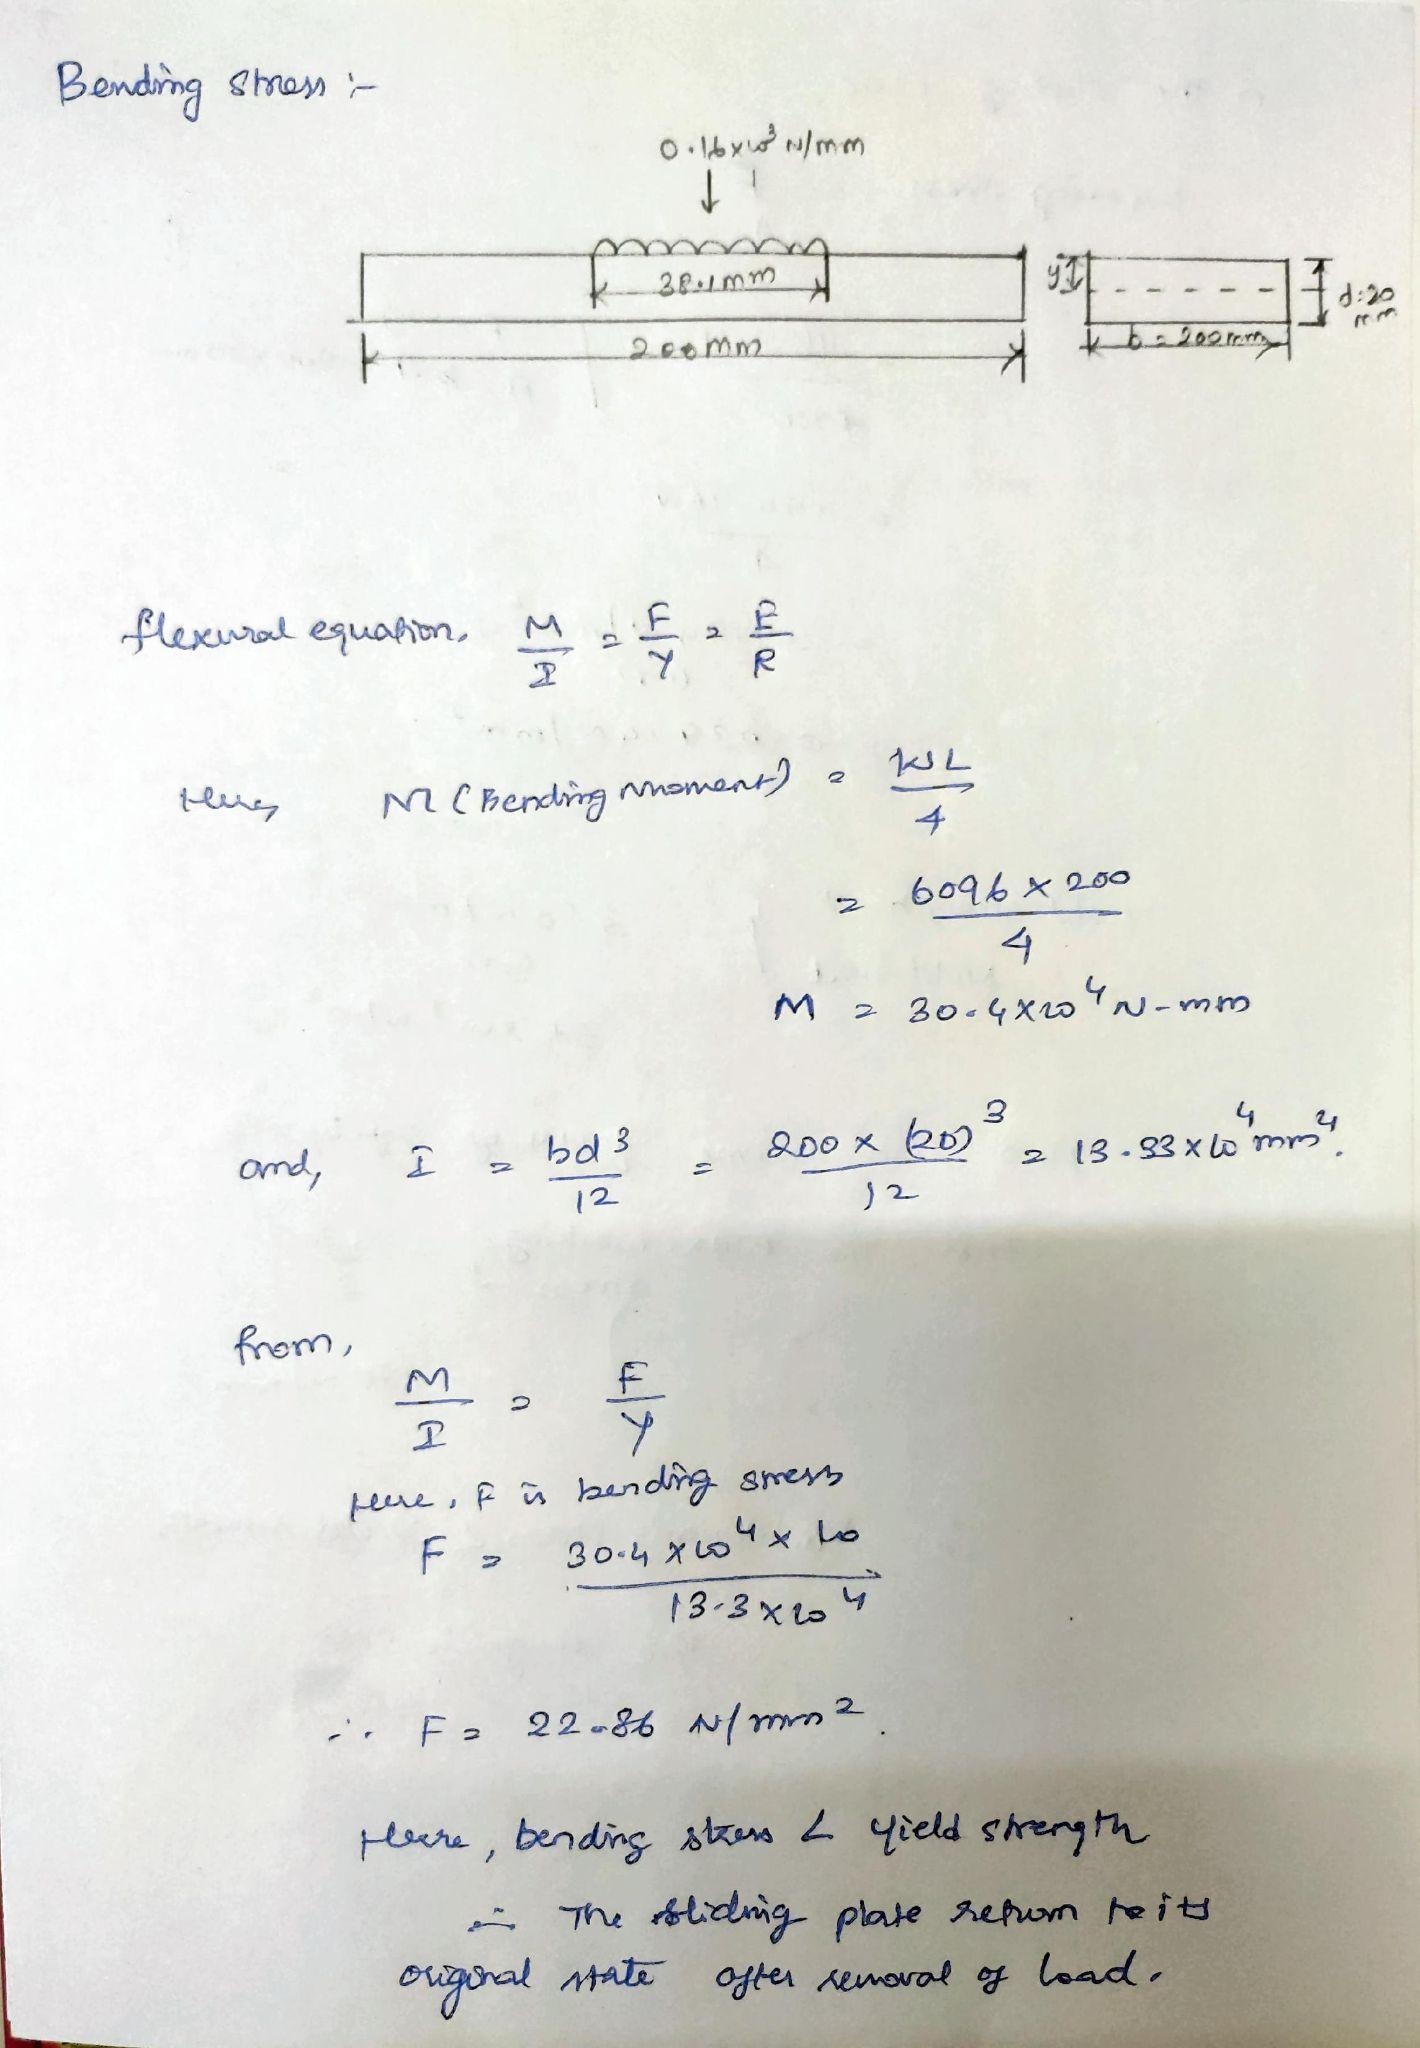 Bending stress :-
0.16x10³ N/mm
38.1mm
200mm
y
b = 200mm
d:20
mm
flexural equation. M/I = F/Y = E/R
Here, M (Bending moment) = WL/4
= 6096 x 200/4
M = 30.4x10⁴ N-mm
and, I = bd³/12 = 200 x (20)³/12 = 13.33x10⁴ mm⁴.
from,
M/I = F/Y
Here, F is bending stress
F = 30.4 x10⁴ x 10/13.3x10⁴
∴ F = 22.86 N/mm².
Here, bending stress < yield strength
∴ The sliding plate return to its
original state after removal of load.